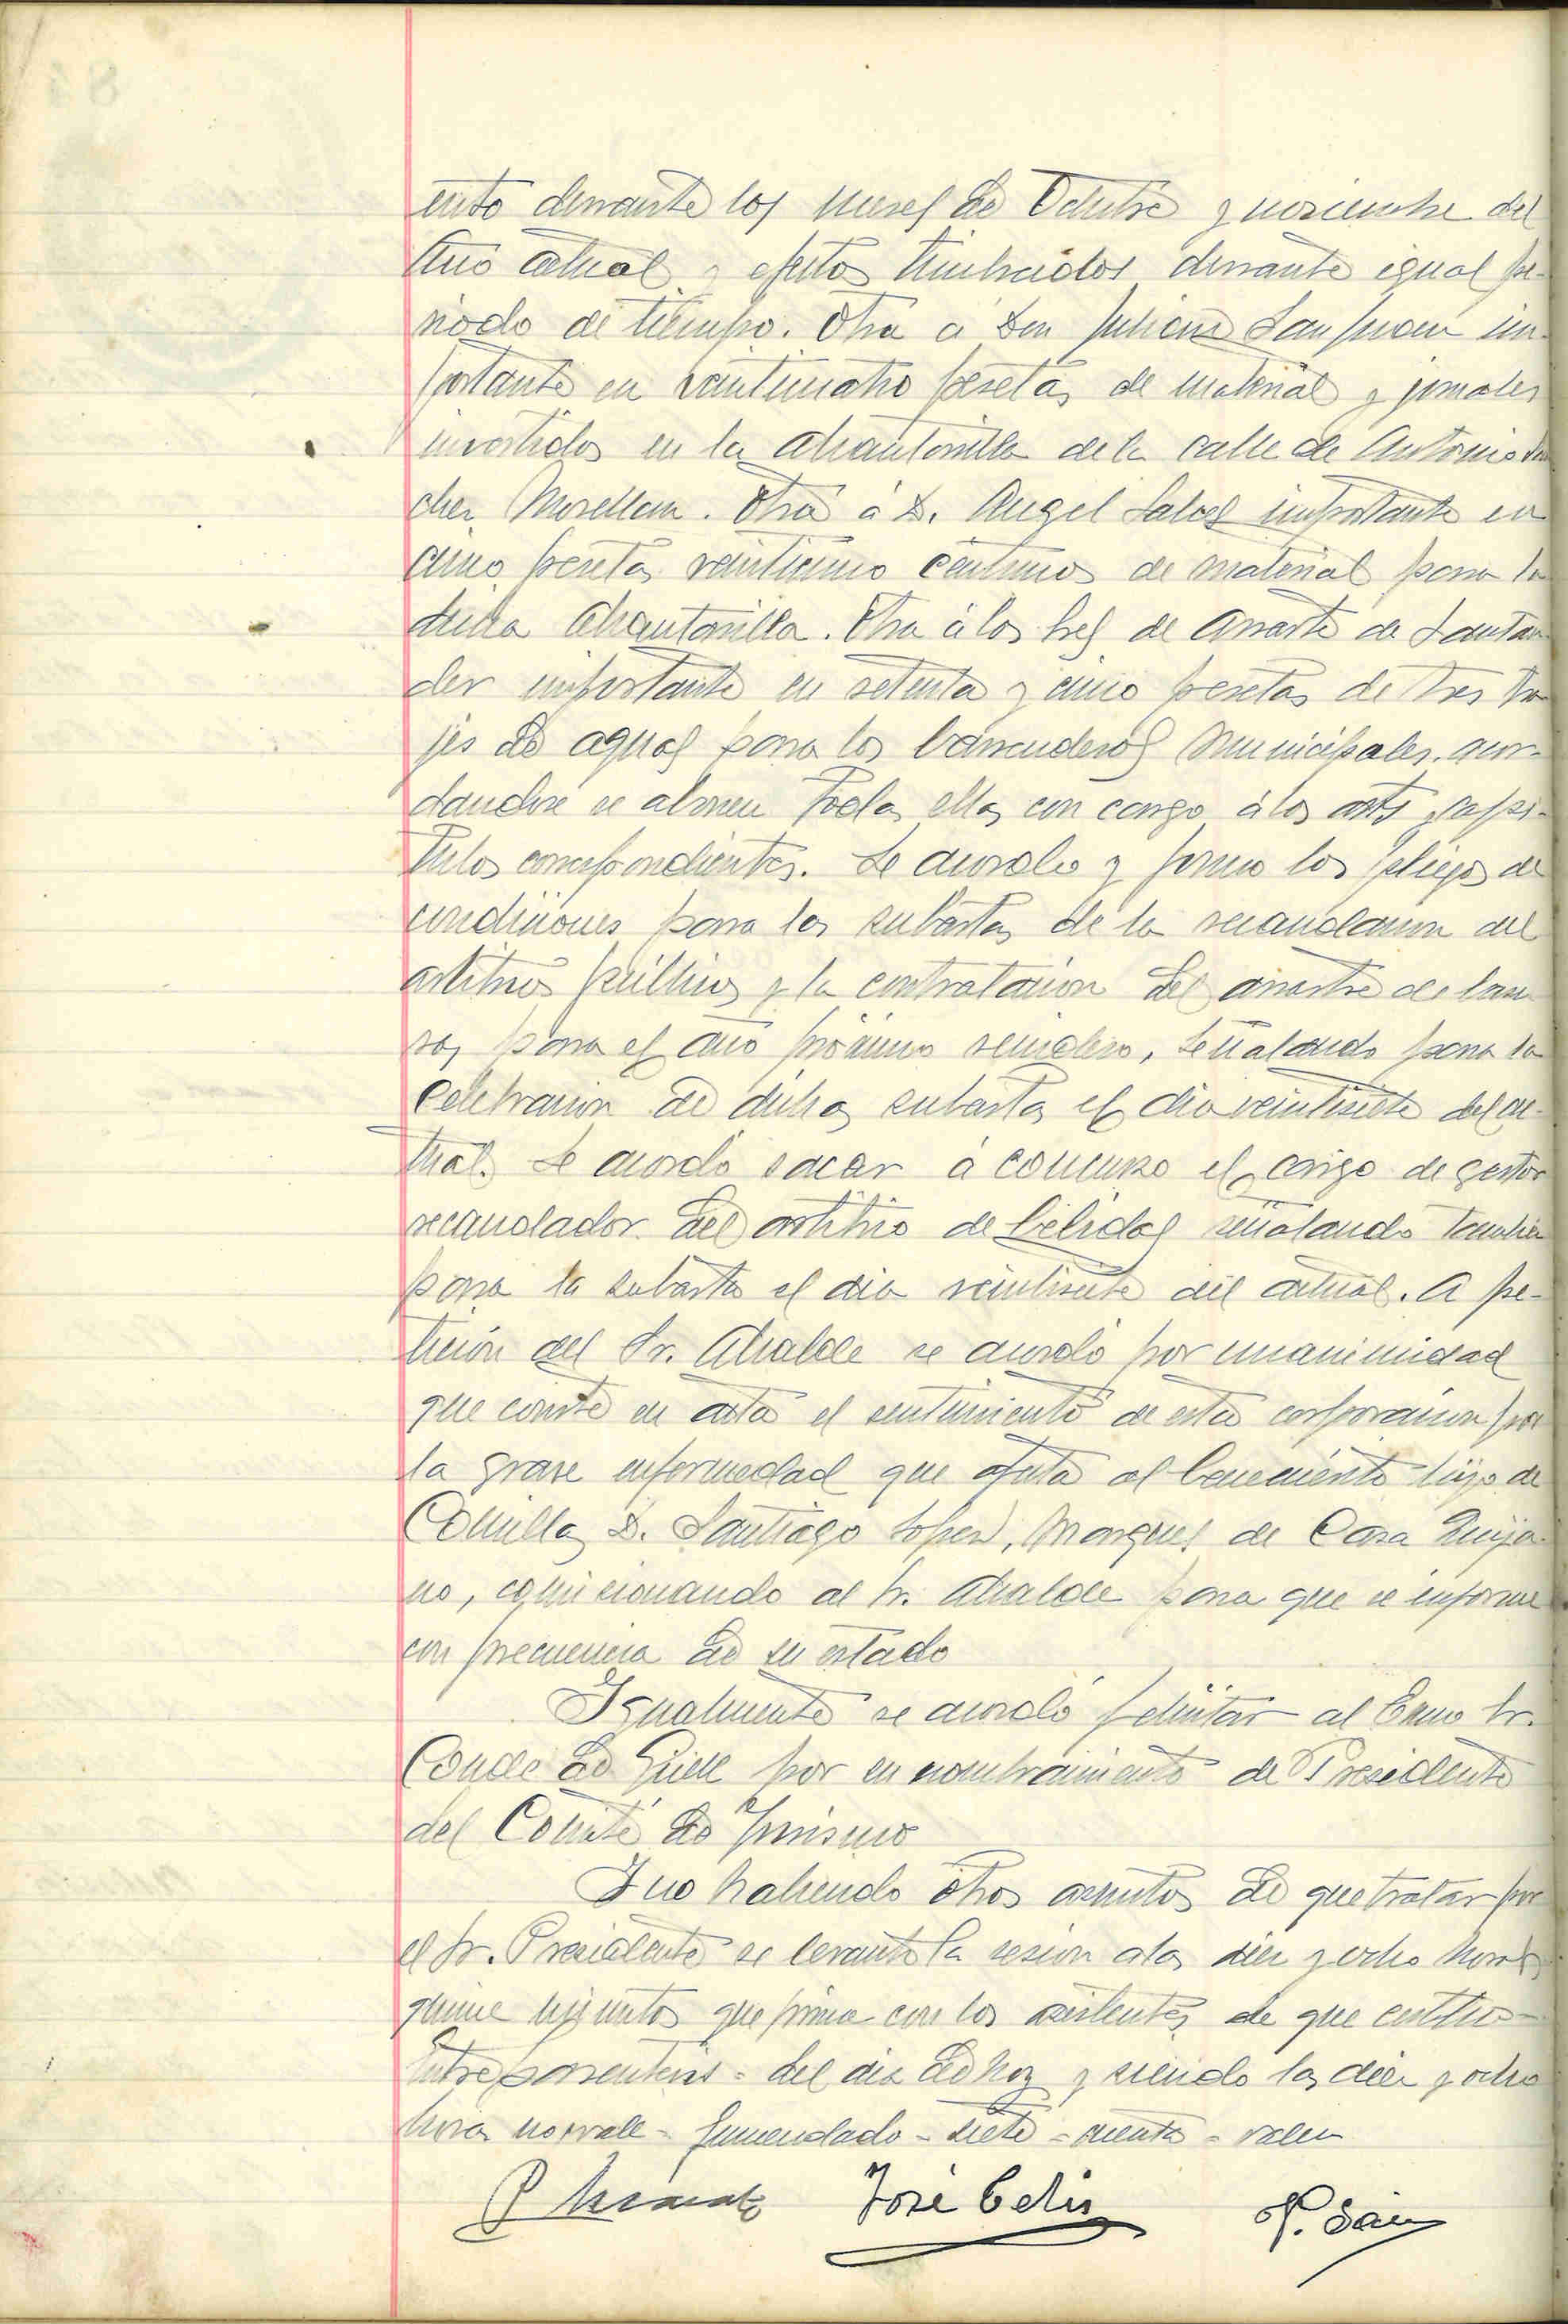 ento durante los meses de Octubre y noviembre del
Año actual y efectos timbrados durante igual pe-
riodo de tiempo. Otra a Don Julian San Juan im-
portante en veinticuatro pesetas de material y jornales
invertidos en la alcantarilla de la calle de Antonio
cher Morellan. Otra á D. Angel Salas importante en
cinco pesetas veinticinco céntimos de material para la
dicha alcantarilla. Otra á los de Arrarte de Santan
der importante en setenta y cinco pesetas de tres tra
jes de aguas para los barrenderos Municipales. acor-
dandose se abonen todas ellas con cargo á los arts y capi-
tulos correspondientes. Se acordo y formo los pliegos de
condiciones para las subastas de la recaudacion del
arbitrios publicos y la contratación del arrastre de
para el año próximo venidero, señalando para la
Celebracion de dichas subastas el dia veintisiete del ac-
tual. Se acordó sacar á concurso el cargo de gestor
recaudador del arbitrio de bebidas señalando tambien
para la subasta el dia veintisiete del actual. A pe-
tición del Sr. Alcalde se acordó por unanimidad
que conste en acta el sentimiento de esta corporacion por
la grave enfermedad que afecta al benemérito hijo de
Comillas D. Santiago Lopez, Marques de Casa Quija-
no, comicionando al Sr. Alcalde para que se informe
con frecuencia de su estado
Igualmente se acordó felicitar al Excmo Sr.
Conde de Güell por su nombramiento de Presidente
del Comité de Turismo
Y no habiendo otros asuntos de que tratar por
el Sr. Presidente se levantó la sesion a las diez y ocho horas
quince minutos que firma con los asistentes de que certifico-
Entre parentesis = del dia de hoy y siendo las diez y ocho
horas no vale = Enmendado = siete = cuenta = valen
José Celis
P. Sainz